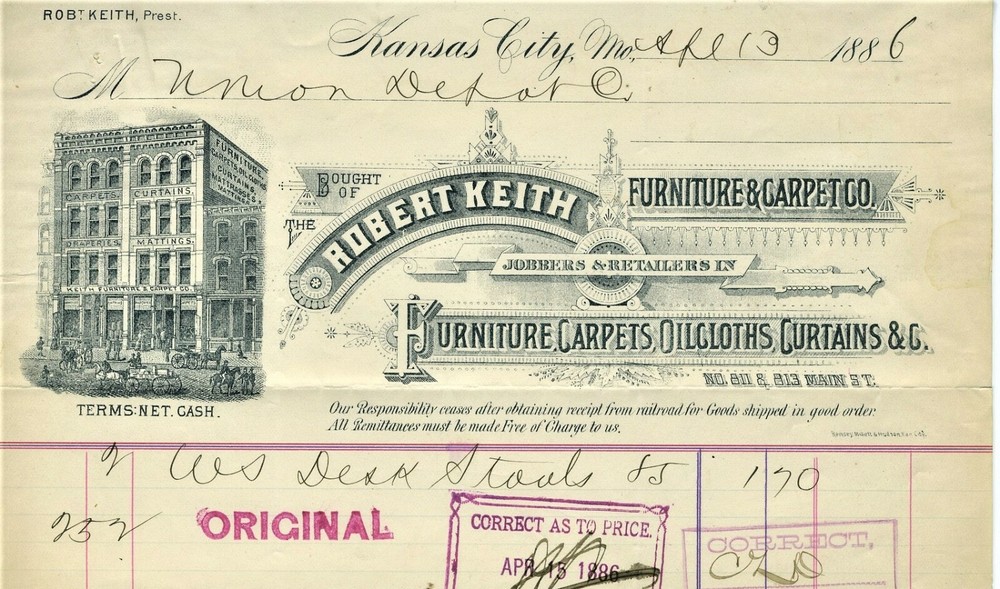 ROBT KEITH, Prest.
Kansas City, Mo. Apl 13 1886
M Union Depot Co.
FURNITURE
CARPETS, OIL CLOTHS
CURTAINS
MATTRESSES
CARPETS CURTAINS.
DRAPERIES MATTINGS.
KEITH FURNITURE & CARPET CO.
BOUGHT OF
THE ROBERT KEITH FURNITURE & CARPET CO.
JOBBERS & RETAILERS IN
FURNITURE, CARPETS, OILCLOTHS, CURTAINS & C.
NO. 811 & 813 MAIN ST.
TERMS: NET. CASH.
Our Responsibility ceases after obtaining receipt from railroad for Goods shipped in good order.
All Remittances must be made Free of Charge to us.
2 WS Desk Stools 85 1 70
252
ORIGINAL
CORRECT AS TO PRICE.
APR 15 1886
CORRECT,